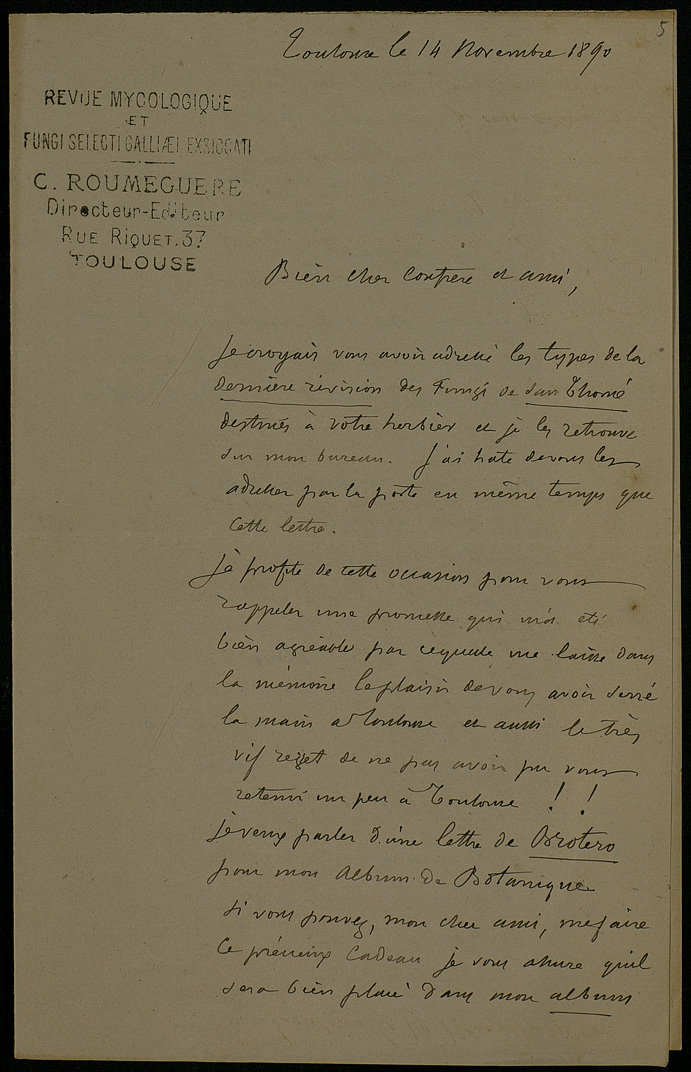 5
Toulouse le 14 Novembre 1890
REVUE MYCOLOGIQUE
ET
FUNGI SELECTI GALLIÆI EXSICCATI
C. ROUMEGUERE
Directeur-Editeur
RUE RIQUET. 37
TOULOUSE
Bien cher confrere et ami,
Je croyais vous avoir adressé les types de la
dernière révision des Fungi de San Thomé
destinés à votre herbier et je les retrouve
sur mon bureau. J'ai hate de vous les
adresser par la poste en même temps que
cette lettre.
Je profite de cette occasion pour vous
rappeler une promesse qui m'a été
bien agréable par ce qu'elle me laisse dans
la mémoire le plaisir de vous avoir serré
la main a Toulouse et aussi le très
vif regret de ne pas avoir pu vous
retenir un peu à Toulouse !!
Je veux parler d'une lettre de Brotero
pour mon Album de Botanique
si vous pouvez, mon cher ami, me faire
ce précieux cadeau je vous assure qu'il
sera bien placé dans mon album